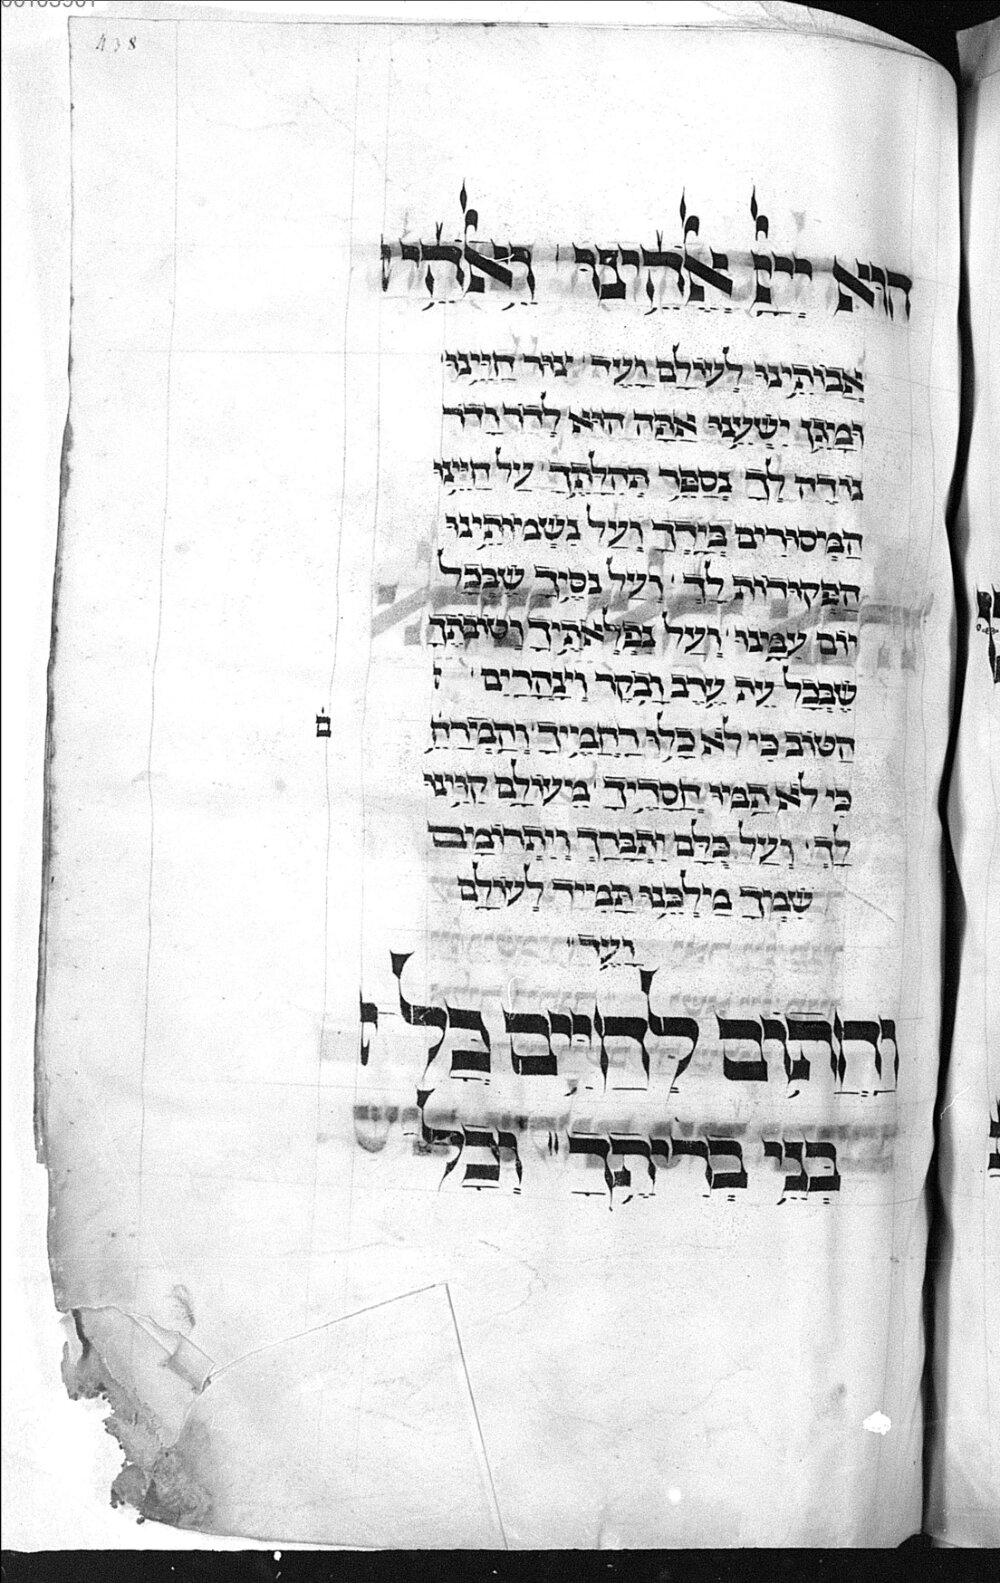 438
הוּא יְיָ אֱלֹהֵינוּ וֵאלֹהֵי
אֲבוֹתֵינוּ לְעוֹלָם וָעֶד צוּר חַיֵּינוּ
וּמָגֵן יִשְׁעֵנוּ אַתָּה הוּא לְדֹר וָדֹר
נוֹדֶה לְךָ נְסַפֵּר תְּהִלָּתֶךָ עַל חַיֵּינוּ
הַמְּסוּרִים בְּיָדֶךָ וְעַל נִשְׁמוֹתֵינוּ
הַפְּקוּדוֹת לָךְ וְעַל נִסֶּיךָ שֶׁבְּכָל
יוֹם עִמָּנוּ וְעַל נִפְלְאֹתֶיךָ וְטוֹבֹתֶךָ
שֶׁבְּכָל עֵת עֶרֶב וָבֹקֶר וְצָהֳרָיִם
הַטּוֹב כִּי לֹא כָלוּ רַחֲמֶיךָ וְהַמְרַחֵ
ם
כִּי לֹא תַמּוּ חֲסָדֶיךָ מֵעוֹלָם קִוִּינוּ
לָךְ וְעַל כֻּלָּם יִתְבָּרֵךְ וְיִתְרוֹמֵם
שִׁמְךָ מַלְכֵּנוּ תָּמִיד לְעוֹלָם
וָעֶד
וְהַטּוֹב לְחַיִּים כָּל
בְּנֵי בְרִיתֶךָ וְכָל